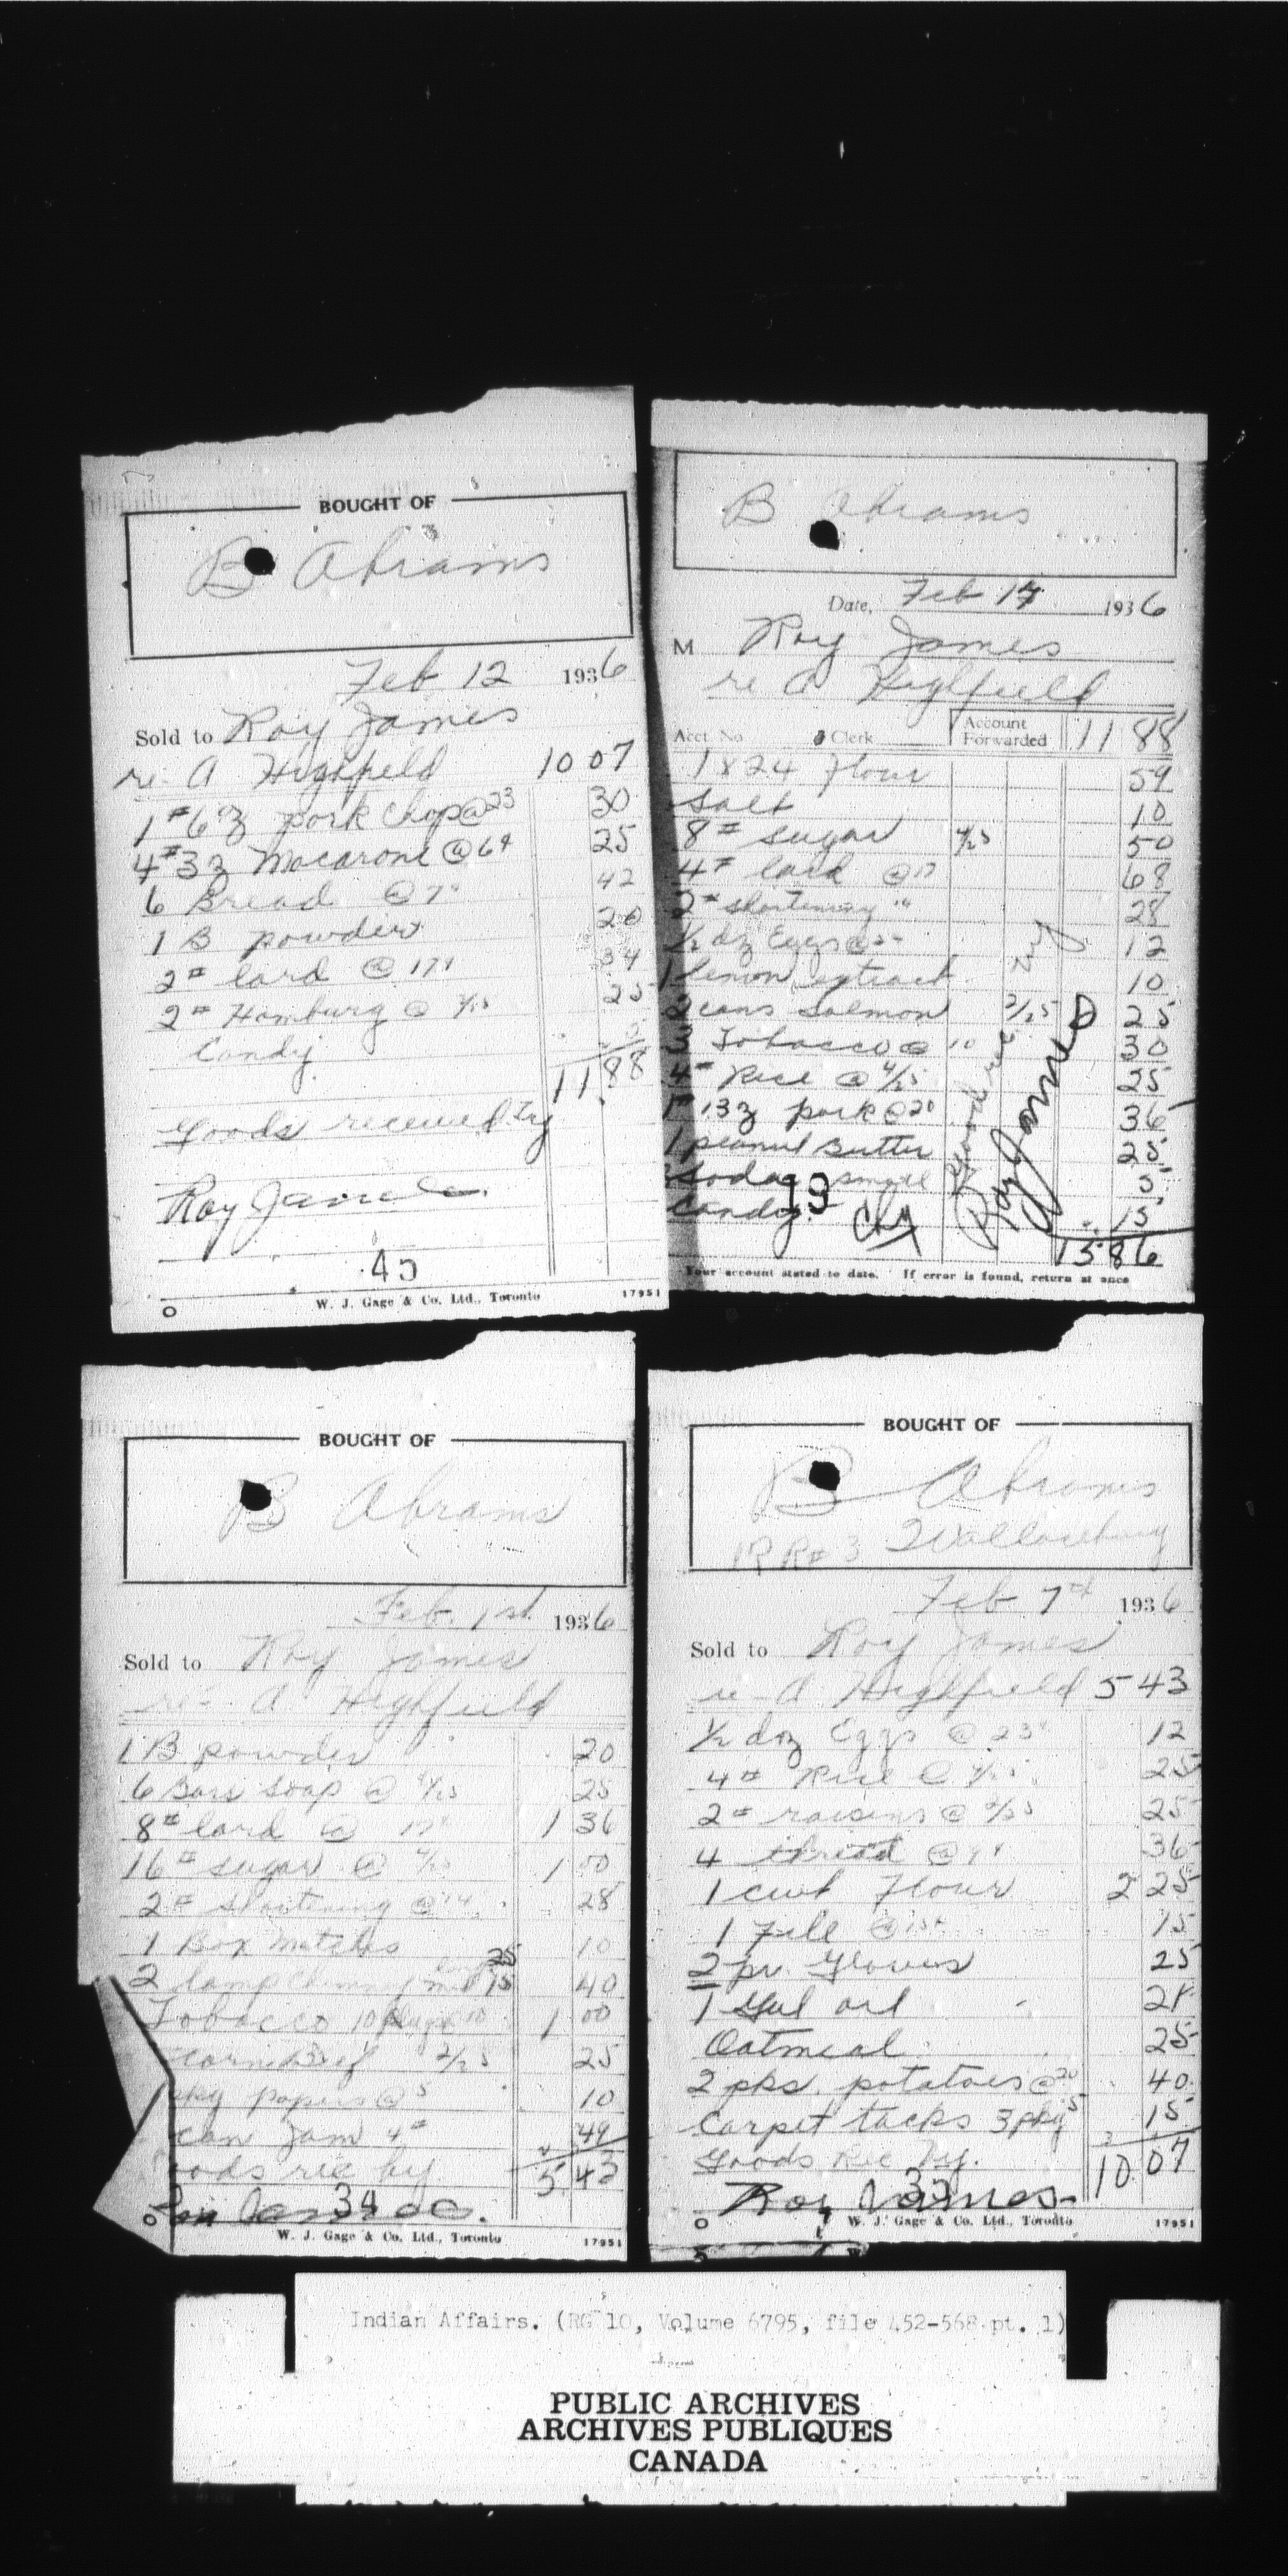 BOUGHT OF
B Abrams
Feb 12 1936
Sold to Roy James
re- A Highfield 10 07
1# 6 oz pork chop @ 23 30
4# 3 oz Macaroni @ 6¢ 25
6 Bread @ 7¢ 42
1 B powder 20
2# lard @ 17¢ 34
2# Hamburg @ 2/25 25
Candy 5
11.88
Goods received by
Roy James
45
W. J. Gage & Co. Ltd., Toronto 17951
B Abrams
Date, Feb 17 1936
M Roy James
re A Highfield
Acct. No. Clerk Account Forwarded 11 88
1 & 24 Flour 59
Salt 10
8# sugar 4/25 50
4# lard @ 17 68
2# shortening 14 28
1/2 doz Eggs @ 12
1 lemon extract 10
2 cans Salmon 2/25 25
3 Tobacco @ 10 30
4# Rice @ 4/25 25
1# 13 oz pork @ 20 36
1 peanut Butter 25
Soda small 5
Candy 15
15 86
Goods rec by
Roy James
19
Your account stated to date. If error is found, return at once
BOUGHT OF
B Abrams
Feb. 1st 1936
Sold to Roy James
re- A Highfield
1 B powder 20
6 Bars Soap @ 6/25 25
8# lard @ 17¢ 1 36
16# sugar @ 4/25 1 00
2# shortening @ 14 28
1 Box matches 10
2 lamp chimney 25 15 40
Tobacco 10 plugs 10 1 00
Corn Beef 2/25 25
pkg papers @ 5 10
can Jam 4# 49
5.43
Goods rec by
34
W. J. Gage & Co. Ltd., Toronto 17951
BOUGHT OF
B Abrams
R R # 3 Wallaceburg
Feb 7th 1936
Sold to Roy James
re- A Highfield 5 43
1/2 doz Eggs @ 23¢ 12
4# Rice @ 4/25 25
2# raisins @ 2/25 25
4 thread @ 9¢ 36
1 cwt Flour 2 25
1 File @ 15¢ 15
2 pr. Gloves 25
1 Gal oil 21
Oatmeal 25
2 pks. potatoes @ 20 40
Carpet tacks 3 pkg 5 15
Goods Rec by. 10.07
Roy James
33
W. J. Gage & Co. Ltd., Toronto 17951
Indian Affairs. (RG 10, Volume 6795, file 452-568 pt. 1)
PUBLIC ARCHIVES
ARCHIVES PUBLIQUES
CANADA